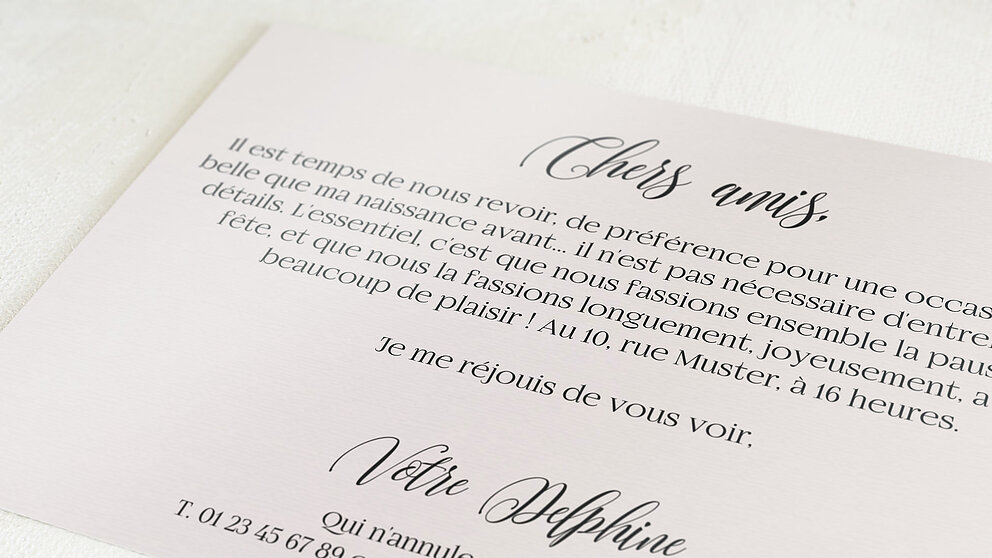 Chers amis,
Il est temps de nous revoir, de préférence pour une occas
belle que ma naissance avant... il n'est pas nécessaire d'entre
détails. L'essentiel, c'est que nous fassions ensemble la paus
fête, et que nous la fassions longuement, joyeusement, a
beaucoup de plaisir ! Au 10, rue Muster, à 16 heures.
Je me réjouis de vous voir,
Votre Delphine
Qui n'annule
T. 01 23 45 67 89